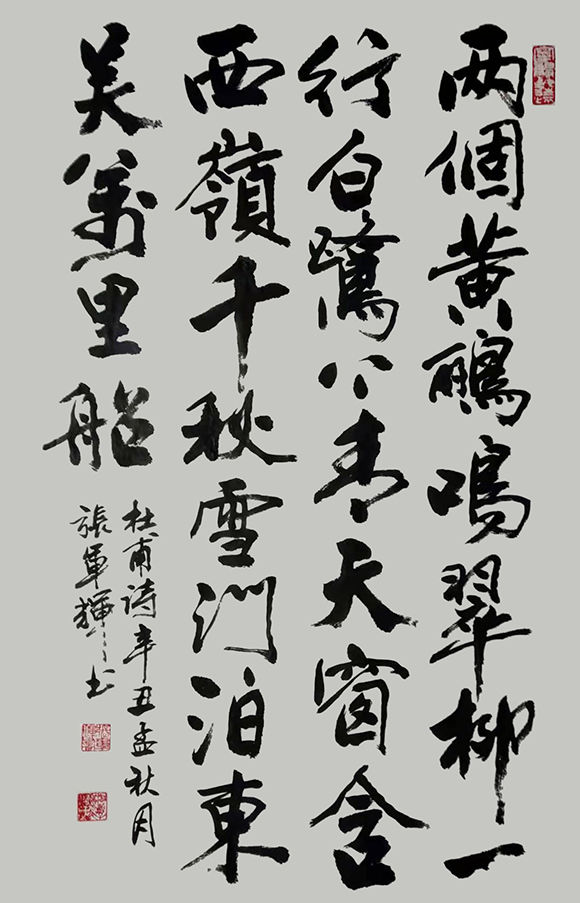 两個黄鸝鳴翠柳一
行白鷺上青天窗含
西嶺千秋雪門泊東
吴萬里船
杜甫詩辛丑孟秋月
張軍輝书